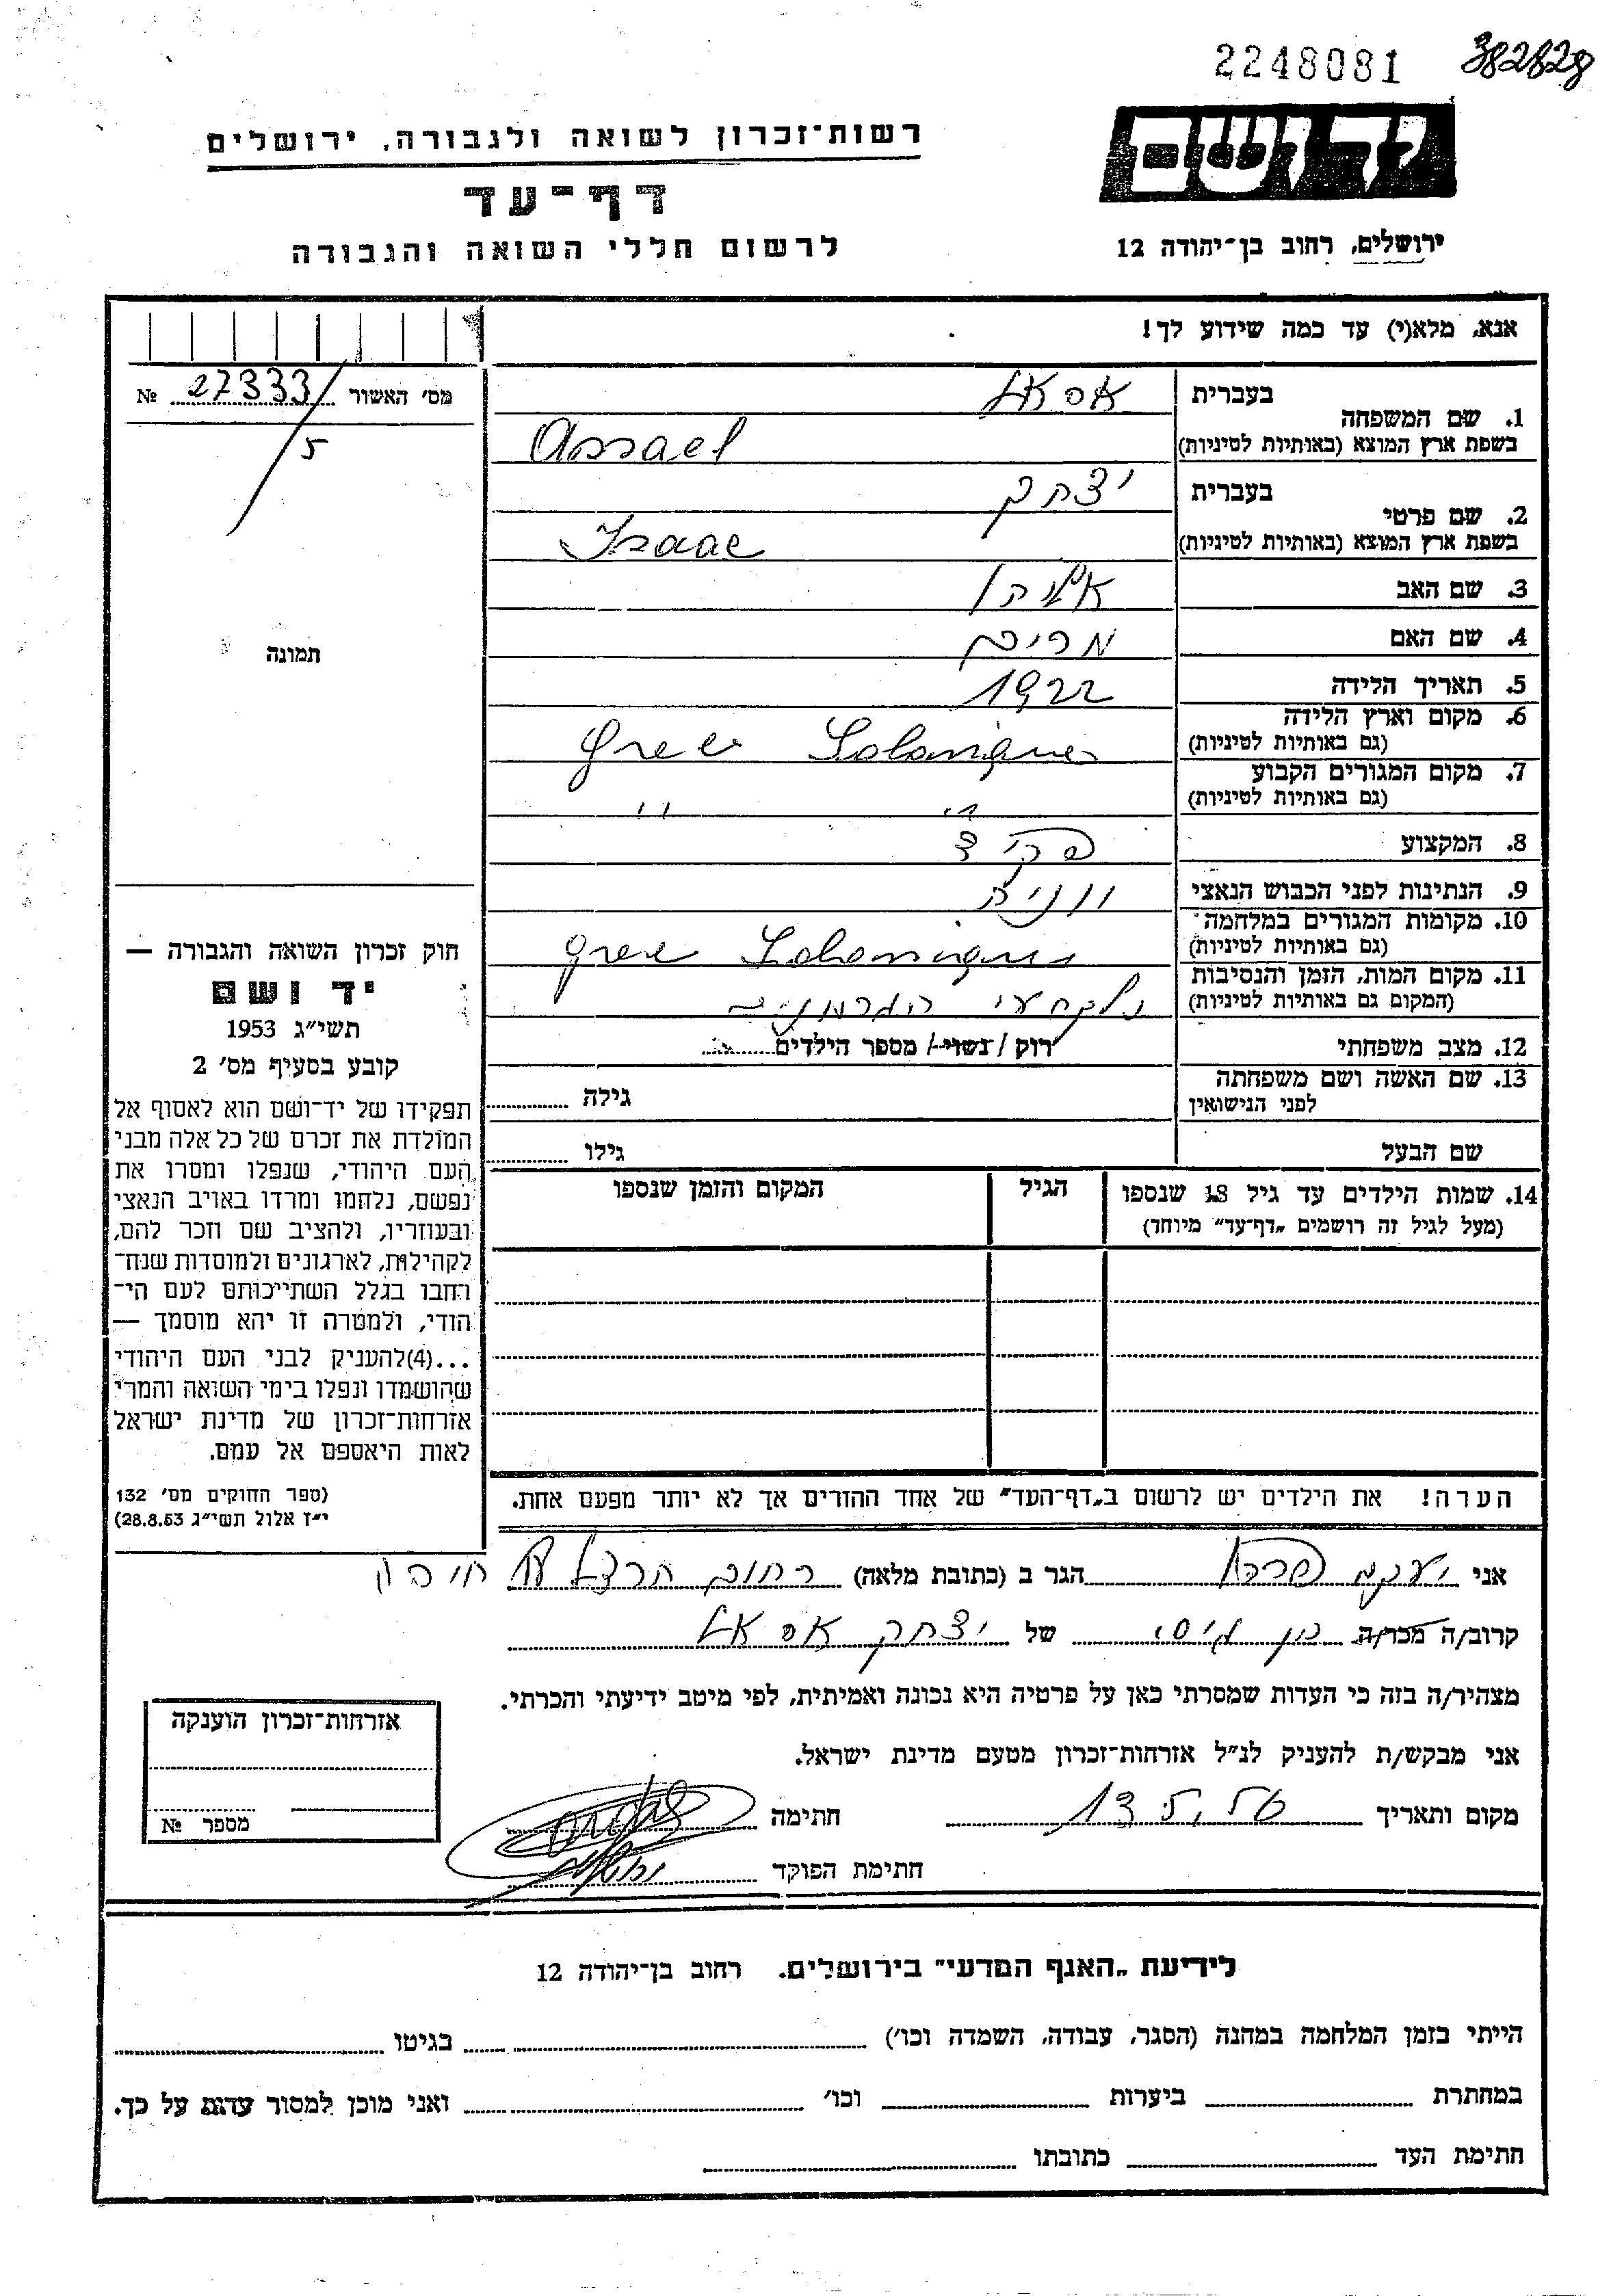 2248081 382828
יד ושם
רשות־זכרון לשואה ולגבורה, ירושלים
דף־עד
לרשום חללי השואה והגבורה
ירושלים, רחוב בן־יהודה 12
אנא, מלא(י) עד כמה שידוע לך!
מס׳ האשור 27333 №
5
תמונה
בעברית אסאל
1. שם המשפחה
בשפת ארץ המוצא (באותיות לטיניות) Assael
בעברית יצחק
2. שם פרטי
בשפת ארץ המוצא (באותיות לטיניות) Isaac
3. שם האב
4. שם האם מרים
5. תאריך הלידה 1922
6. מקום וארץ הלידה
(גם באותיות לטיניות) Grece Salonique
7. מקום המגורים הקבוע
(גם באותיות לטיניות) " "
8. המקצוע פקיד
9. הנתינות לפני הכבוש הנאצי יוונית
10. מקומות המגורים במלחמה
(גם באותיות לטיניות) Grece Salonique
11. מקום המות, הזמן והנסיבות
(המקום גם באותיות לטיניות) הגרמנים
12. מצב משפחתי רוק / נשוי / מספר הילדים
13. שם האשה ושם משפחתה
לפני הנישואין גילה
שם הבעל גילו
14. שמות הילדים עד גיל 18 שנספו הגיל המקום והזמן שנספו
(מעל לגיל זה רושמים „דף־עד” מיוחד)
הערה! את הילדים יש לרשום ב„דף־העד” של אחד ההורים אך לא יותר מפעם אחת.
חוק זכרון השואה והגבורה —
יד ושם
תשי״ג 1953
קובע בסעיף מס׳ 2
תפקידו של יד־ושם הוא לאסוף אל
המולדת את זכרם של כל אלה מבני
העם היהודי, שנפלו ומסרו את
נפשם, נלחמו ומרדו באויב הנאצי
ובעוזריו, ולהציב שם וזכר להם,
לקהילות, לארגונים ולמוסדות שנח־
רבו בגלל השתייכותם לעם הי־
הודי, ולמטרה זו יהא מוסמך —
...(4)להעניק לבני העם היהודי
שהושמדו ונפלו בימי השואה והמרי
אזרחות־זכרון של מדינת ישראל
לאות היאספם אל עמם.
(ספר החוקים מס׳ 132
י״ז אלול תשי״ג 28.8.53)
אני יעקב הגר ב (כתובת מלאה) רחוב הרצל
קרוב/ה מכר/ה בן גיסי של יצחק אסאל
מצהיר/ה בזה כי העדות שמסרתי כאן על פרטיה היא נכונה ואמיתית, לפי מיטב ידיעתי והכרתי.
אני מבקש/ת להעניק לנ״ל אזרחות־זכרון מטעם מדינת ישראל.
מקום ותאריך חתימה
חתימת הפוקד
אזרחות־זכרון הוענקה
מספר №
לידיעת „האגף המדעי” בירושלים. רחוב בן־יהודה 12
הייתי בזמן המלחמה במחנה (הסגר, עבודה, השמדה וכו׳) בגיטו
במחתרת ביערות וכו׳ ואני מוכן למסור עדות על כך.
חתימת העד כתובתו